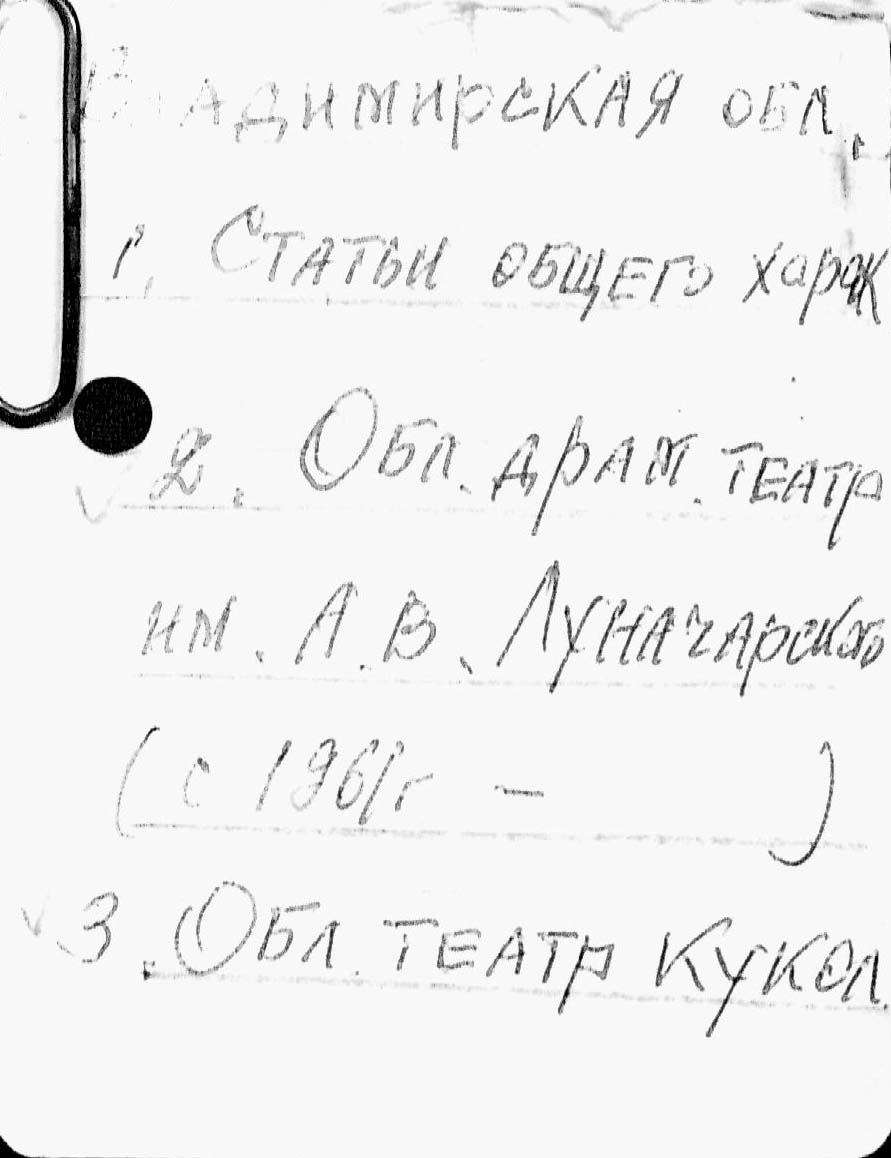 Владимирская обл.
1. Статьи общего харак
2. Обл. драм. театр
им. А. В. Луначарского
(с 1961г — )
3. Обл. театр кукол